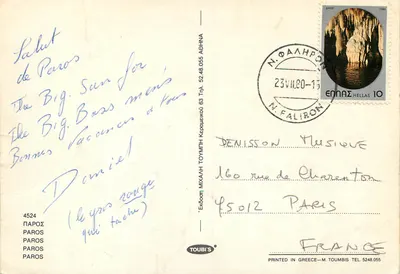 Salut
de Paros
The Big Sun for
the Big Boss mens
Bonnes vacances à tous
Daniel
(le gros rouge
qui tache)
4524
ΠΑΡΟΣ
PAROS
PAROS
PAROS
PAROS
Έκδοση ΜΙΧΑΛΗ ΤΟΥΜΠΗ Κεραμεικού 63 Τηλ. 52.48.055 ΑΘΗΝΑ
TOUBI'S
Ν. ΦΑΛΗΡΟΝ
23 VII 80-1
N. FALIRON
ΕΛΛΑΣ HELLAS 10
DENISSON MUSIQUE
160 rue de Charenton
75012 PARIS
FRANCE
PRINTED IN GREECE-M. TOUMBIS TEL. 5248.055